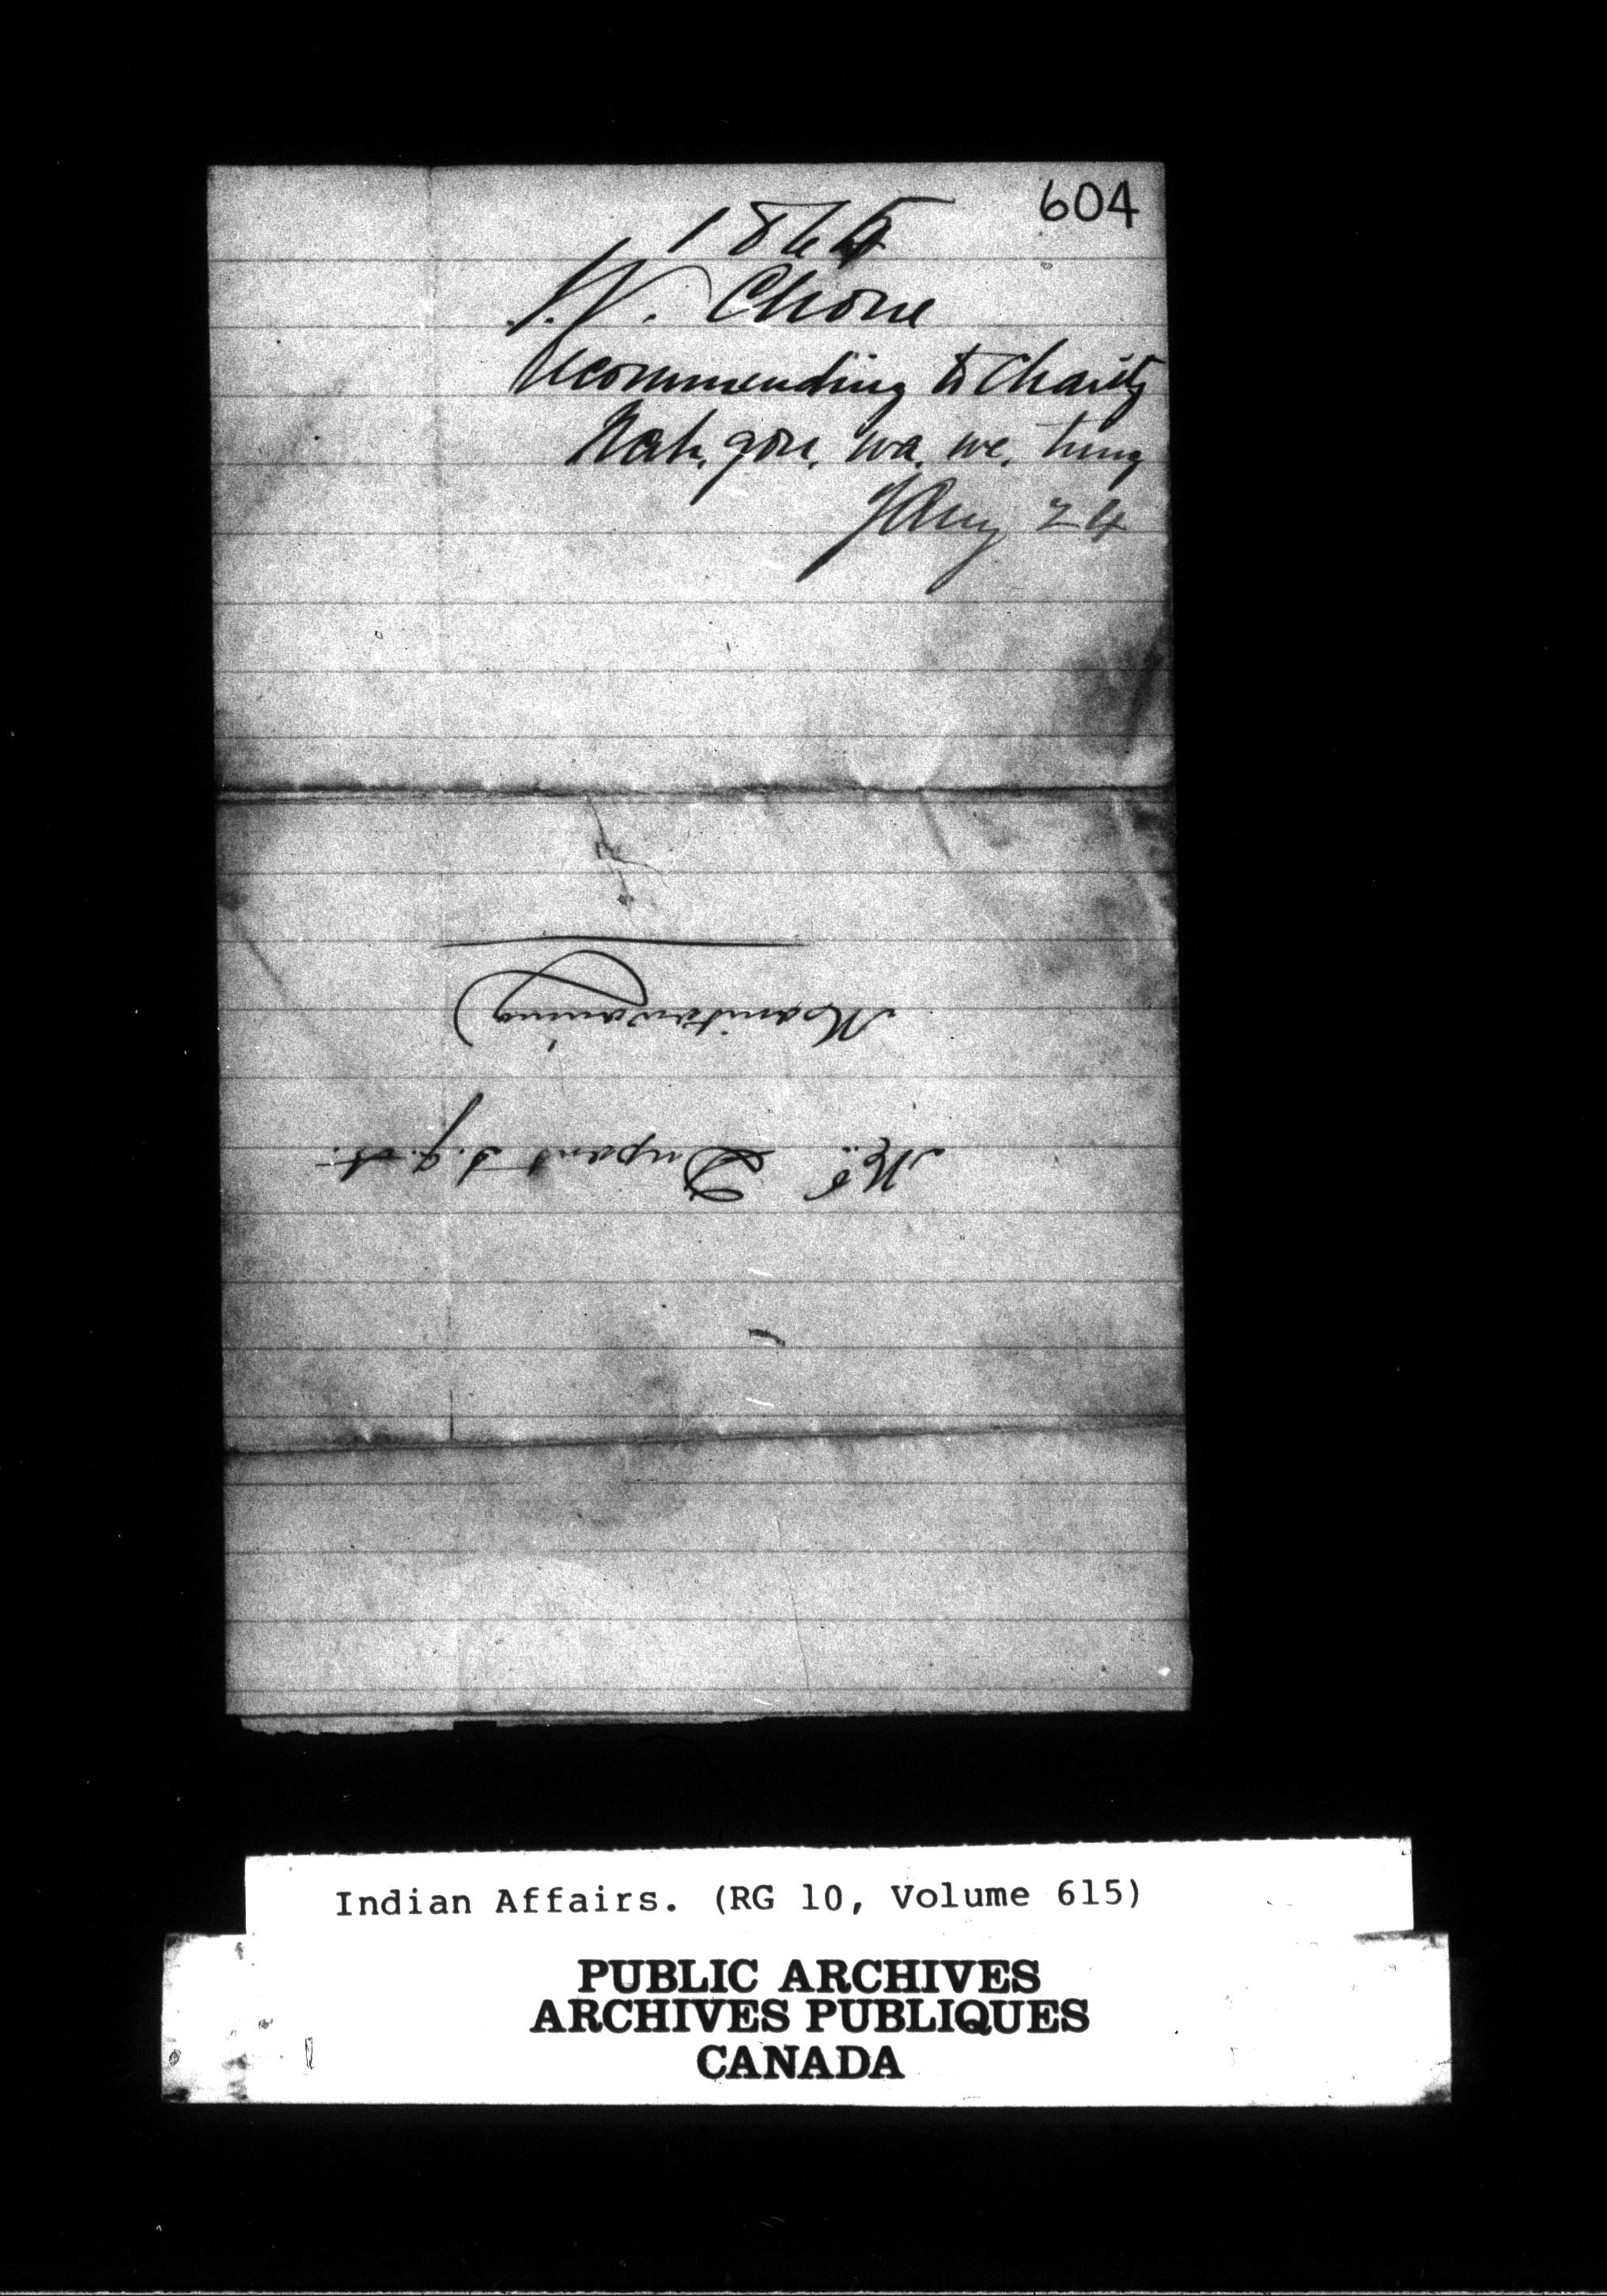 604
1865
J.P. Choné
recommending to Charity
Nah. gon. wa. we. tung
Jany 24
Manitowaning
Mr. Dupont I.G.A.
Indian Affairs. (RG 10, Volume 615)
PUBLIC ARCHIVES
ARCHIVES PUBLIQUES
CANADA